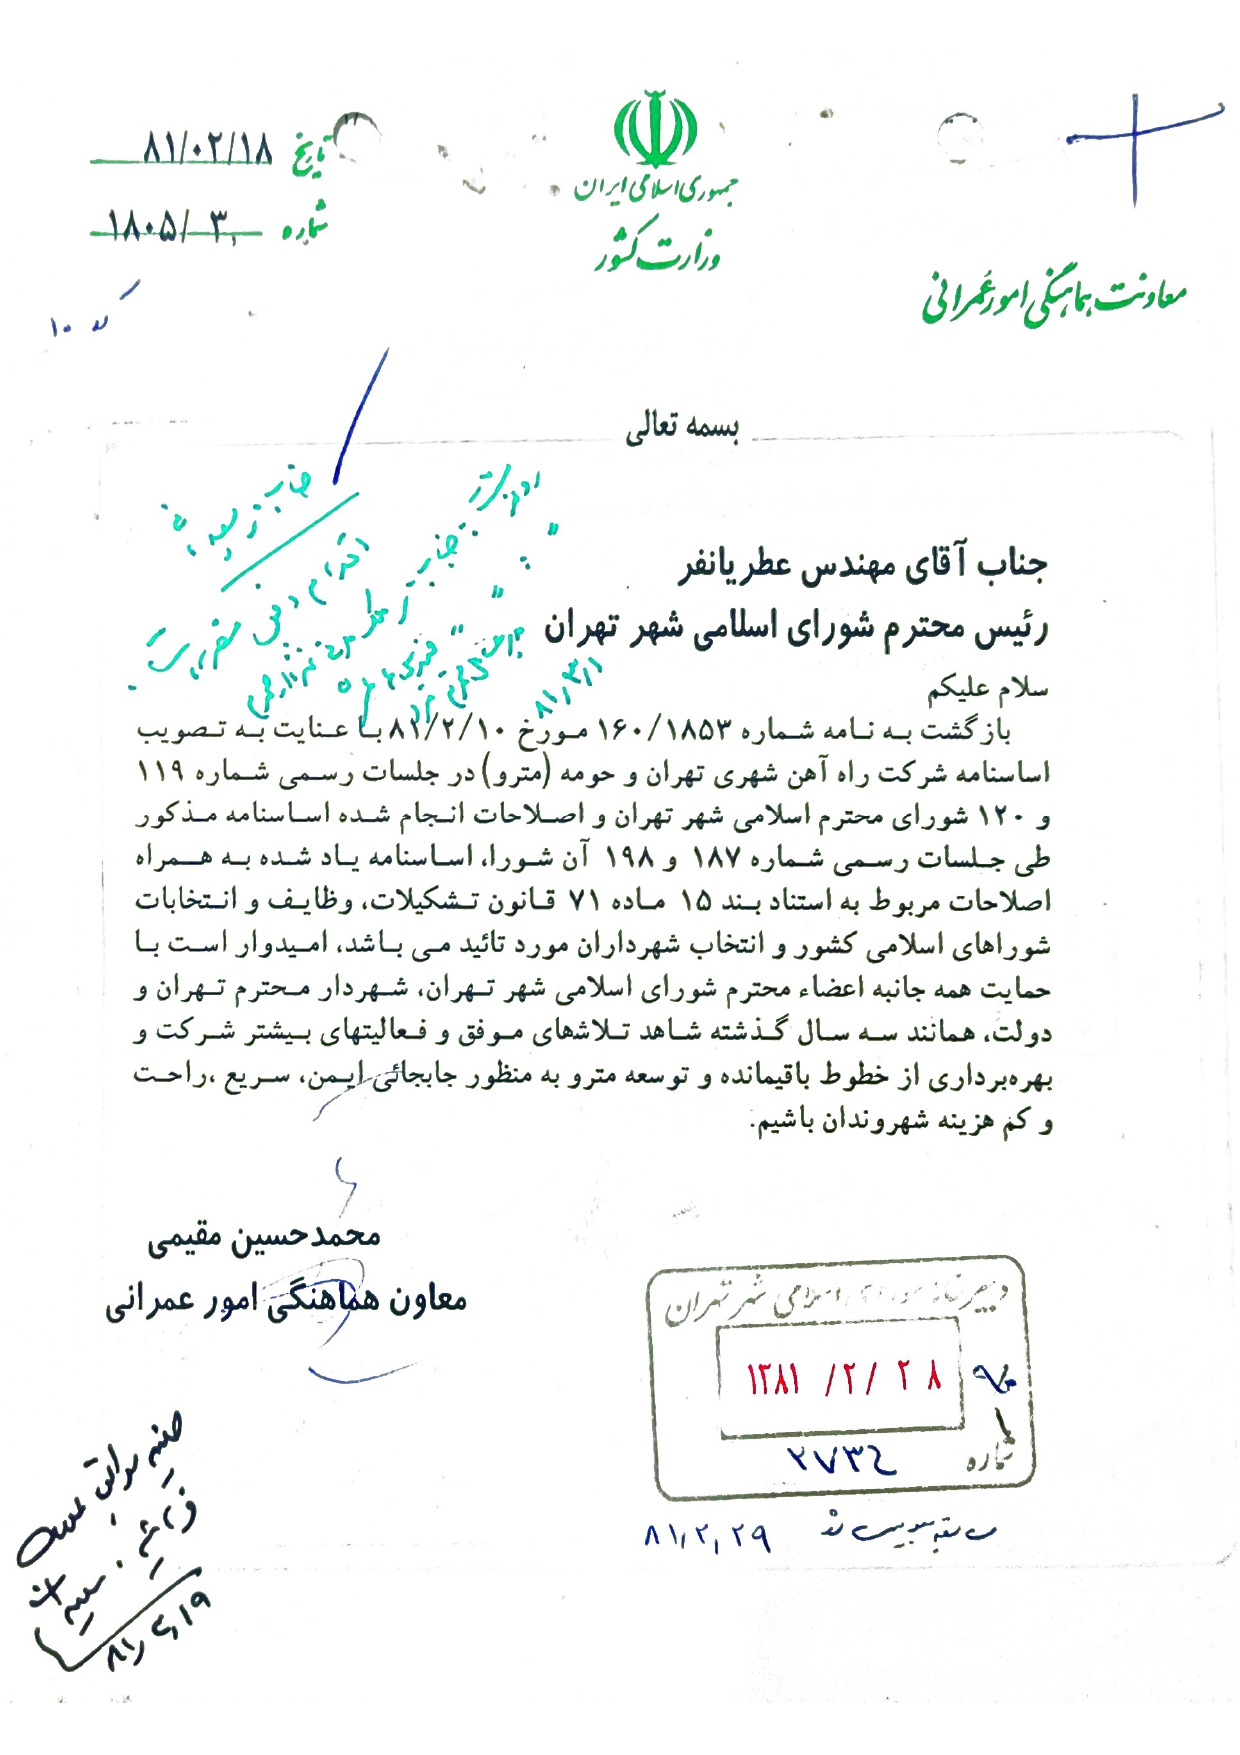 جمهوری اسلامی ایران
وزارت کشور
معاونت هماهنگی امور عمرانی
تاریخ ۸۱/۰۲/۱۸
شماره ۱۸۰۵/۳
بسمه تعالی
جناب آقای مهندس عطریانفر
رئیس محترم شورای اسلامی شهر تهران
سلام علیکم
بازگشت به نامه شماره ۱۶۰/۱۸۵۳ مورخ ۸۱/۲/۱۰ با عنایت به تصویب
اساسنامه شرکت راه آهن شهری تهران و حومه (مترو) در جلسات رسمی شماره ۱۱۹
و ۱۲۰ شورای محترم اسلامی شهر تهران و اصلاحات انجام شده اساسنامه مذکور
طی جلسات رسمی شماره ۱۸۷ و ۱۹۸ آن شورا، اساسنامه یاد شده به همراه
اصلاحات مربوط به استناد بند ۱۵ ماده ۷۱ قانون تشکیلات، وظایف و انتخابات
شوراهای اسلامی کشور و انتخاب شهرداران مورد تائید می باشد، امیدوار است با
حمایت همه جانبه اعضاء محترم شورای اسلامی شهر تهران، شهردار محترم تهران و
دولت، همانند سه سال گذشته شاهد تلاشهای موفق و فعالیتهای بیشتر شرکت و
بهره‌برداری از خطوط باقیمانده و توسعه مترو به منظور جابجائی ایمن، سریع ،راحت
و کم هزینه شهروندان باشیم.
محمدحسین مقیمی
معاون هماهنگی امور عمرانی
دبیرخانه شورای اسلامی شهر تهران
۱۳۸۱/۲/۲۸
شماره ۲۷۳۴
۸۱/۲/۲۹